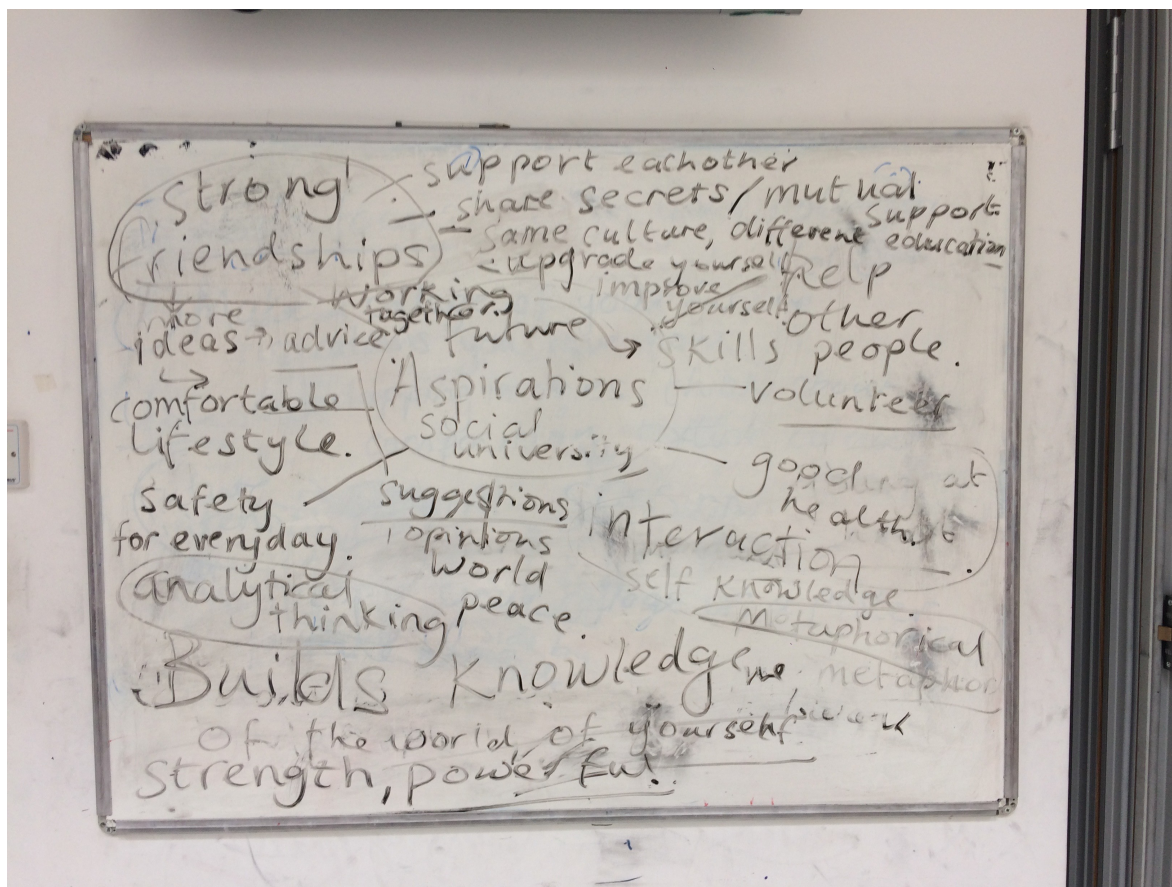 strong
friendships
support eachother
share secrets/mutual
support
same culture, different education
upgrade yourself
improve
yourself
help
other
people.
working
together.
more
ideas → advice
comfortable
lifestyle.
future
Aspirations
social
university
skills
volunteer
safety
for everyday.
suggestions
opinions
world
peace.
good at
health
interaction
self knowledge
analytical
thinking
Metaphorical
metaphor
Builds knowledge
of the world, of yourself
strength, powerful.